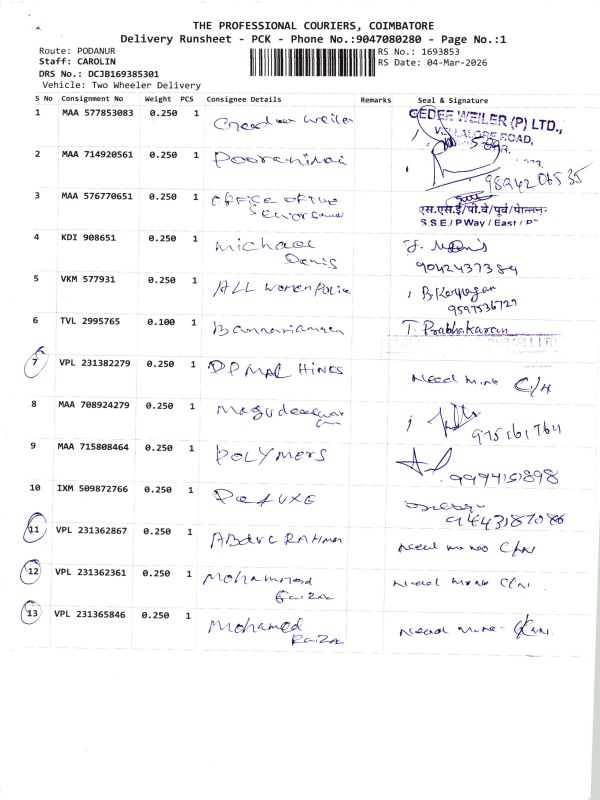 THE PROFESSIONAL COURIERS, COIMBATORE
Delivery Runsheet - PCK - Phone No.:9047080280 - Page No.:1
Route: PODANUR
RS No.: 1693853
Staff: CAROLIN
RS Date: 04-Mar-2026
DRS No.: DCJB169385301
Vehicle: Two Wheeler Delivery
S No Consignment No Weight PCS Consignee Details Remarks Seal & Signature
1 MAA 577853083 0.250 1 Weiler GEDEE WEILER (P) LTD.,
ROAD,
2 MAA 714920561 0.250 1
9894206535
3 MAA 576770651 0.250 1 office of the
S.S.E / P.Way / East /
4 KDI 908651 0.250 1 Michael
Denis
9042437384
5 VKM 577931 0.250 1 ALL women Police
9597536727
6 TVL 2995765 0.100 1 Bannariamman T. Prabhakaran
7 VPL 231382279 0.250 1 Need more C/N
8 MAA 708924279 0.250 1
9 MAA 715808464 0.250 1 POLYMERS
9994151898
10 IXM 509872766 0.250 1
9443187086
11 VPL 231362867 0.250 1 Abdul RAHMAN Need more C/N
12 VPL 231362361 0.250 1 Mohammed Need more C/N
Faizal
13 VPL 231365846 0.250 1 Mohamed Need more C/N
Faizal